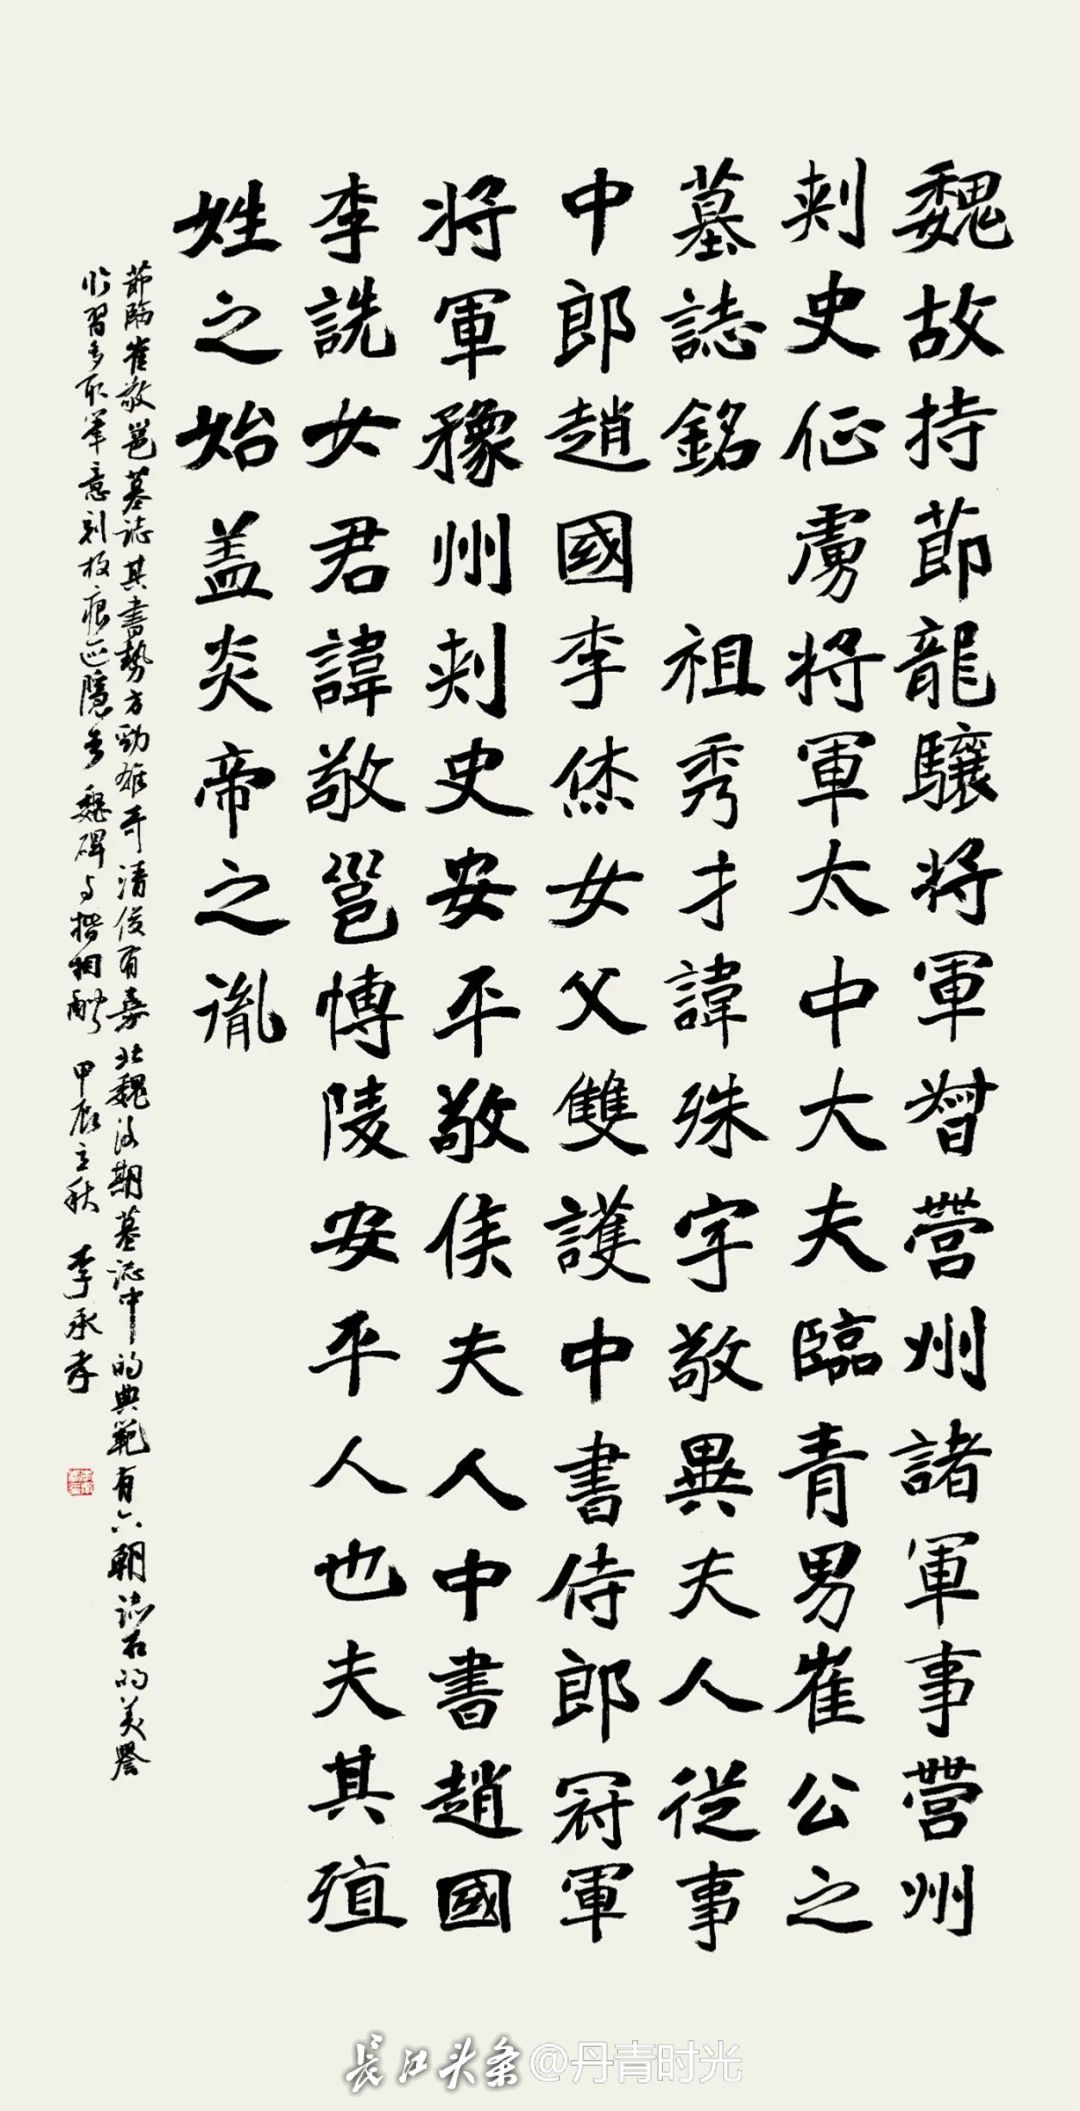 魏故持節龍驤將軍督營州諸軍事營州
刺史征虜將軍太中大夫臨青男崔公之
墓誌銘 祖秀才諱殊字敬異夫人從事
中郎趙國李烋女父雙護中書侍郎冠軍
將軍豫州刺史安平敬侯夫人中書趙國
李詵女君諱敬邕博陵安平人也夫其殖
姓之始蓋炎帝之胤
節臨崔敬邕墓誌其書勢方勁雄奇清俊有 北魏後期墓誌中的典範有六朝誌石的美譽
臨習多取筆意刻板痕跡隱 魏碑与楷相融 甲辰立秋 李承孝
長江头条@丹青时光